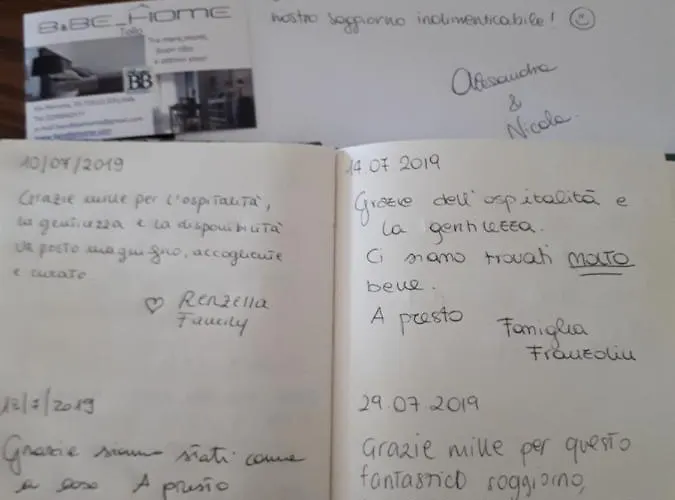 B&BE_HOME
Tollo
Tra mare, monti,
buon cibo
e ottimo vino!
BB
nostro soggiorno indimenticabile! ☺
Alessandra
&
Nicola.
10/07/2019
Grazie mille per l'ospitalità,
la gentilezza e la disponibilità
Un posto magnifico, accogliente
e curato
♡ Renzella
Family
12/7/2019
Grazie siamo stati come
a casa A presto
14.07 2019
Grazie dell'ospitalità e
la gentilezza.
Ci siamo trovati molto
bene.
A presto Famiglia
Franzolin
29.07 2019
Grazie mille per questo
fantastico soggiorno,